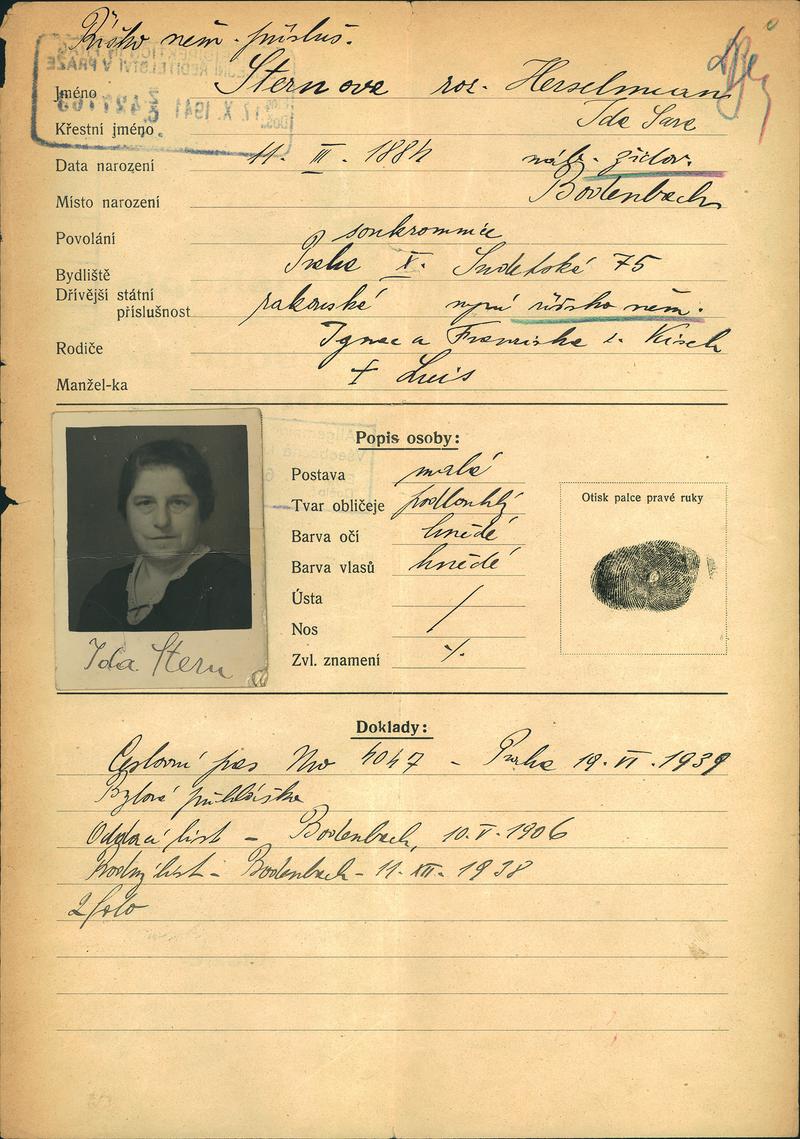 Říško něm. přísluš.
Jméno Sternova roz. Herselmann
Křestní jméno Ida Sara
Data narození 11. III. 1884 náb. židov.
Místo narození Bodenbach
Povolání soukromnice
Bydliště Praha X. Sudetská 75
Dřívější státní
příslušnost rakouská nyní říšsko něm.
Rodiče Ignac a Franziska r. Kisch
Manžel-ka † Luis
Popis osoby:
Postava malá
Tvar obličeje podlouhlý
Barva očí hnědé
Barva vlasů hnědé
Ústa /
Nos /
Zvl. znamení
Otisk palce pravé ruky
Ida Stern
Doklady:
Cestovní pas No 4047 - Praha 19. VI. 1939
Bytová přihláška
Oddací list - Bodenbach, 10. V. 1906
Rodný list - Bodenbach - 11. XII. 1938
2 foto